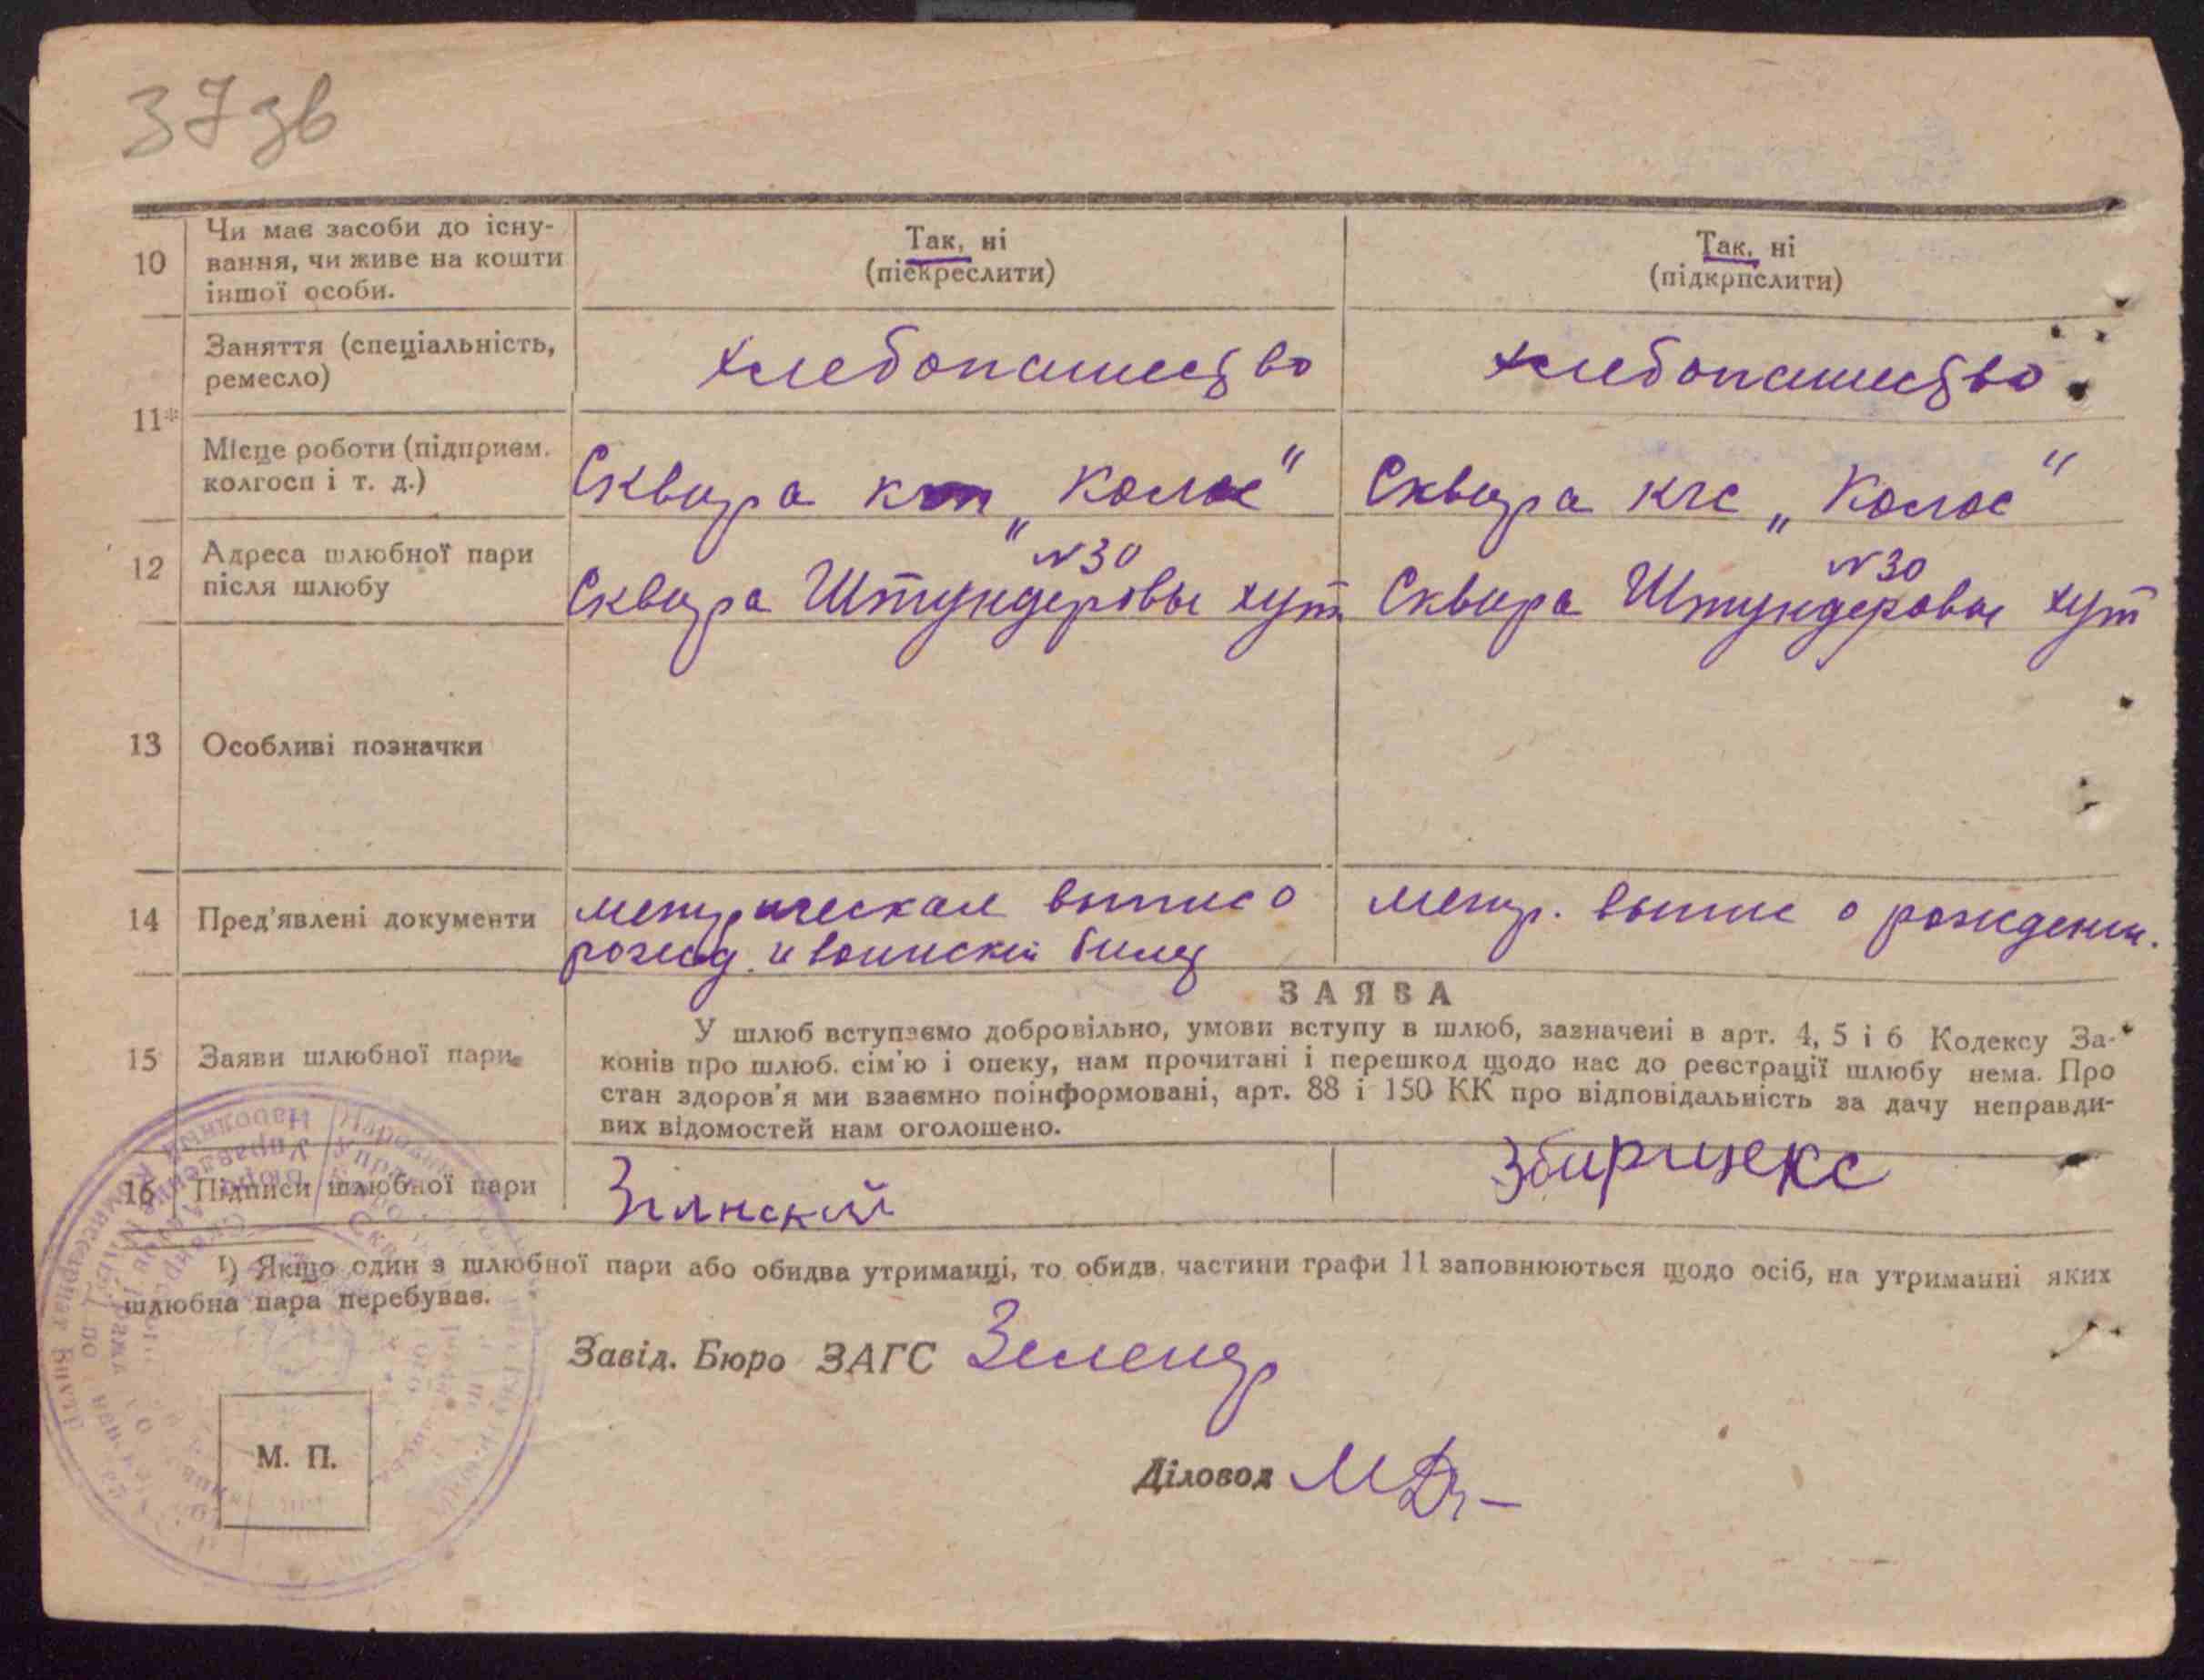 37 зв
10 Чи має засоби до існу-
вання, чи живе на кошти
іншої особи.
Так, ні
(піекреслити)
Так, ні
(підкрпслити)
11*
Заняття (спеціальність,
ремесло)
хлебопашество
хлебопашество
Місце роботи (підприєм.
колгосп і т. д.)
Сквира „Колос“
Сквира кгс „Колос“
12 Адреса шлюбної пари
після шлюбу
N 30
Сквира Штундеровы хут
N 30
Сквира Штундеровы хут
13 Особливі позначки
14 Пред'явлені документи
метрическая выпис о
рожд. и воинский билет
метр. выпис о рождении.
15 Заяви шлюбної пари
ЗАЯВА
У шлюб вступаємо добровільно, умови вступу в шлюб, зазначені в арт. 4, 5 і 6 Кодексу За-
конів про шлюб. сім'ю і опеку, нам прочитані і перешкод щодо нас до реєстрації шлюбу нема. Про
стан здоров'я ми взаємно поінформовані, арт. 88 і 150 КК про відповідальність за дачу неправди-
вих відомостей нам оголошено.
16 Підписи шлюбної пари
¹) Якщо один з шлюбної пари або обидва утриманці, то обидв. частини графи 11 заповнюються щодо осіб, на утриманні яких
шлюбна пара перебуває.
Завід. Бюро ЗАГС
Діловод
М. П.